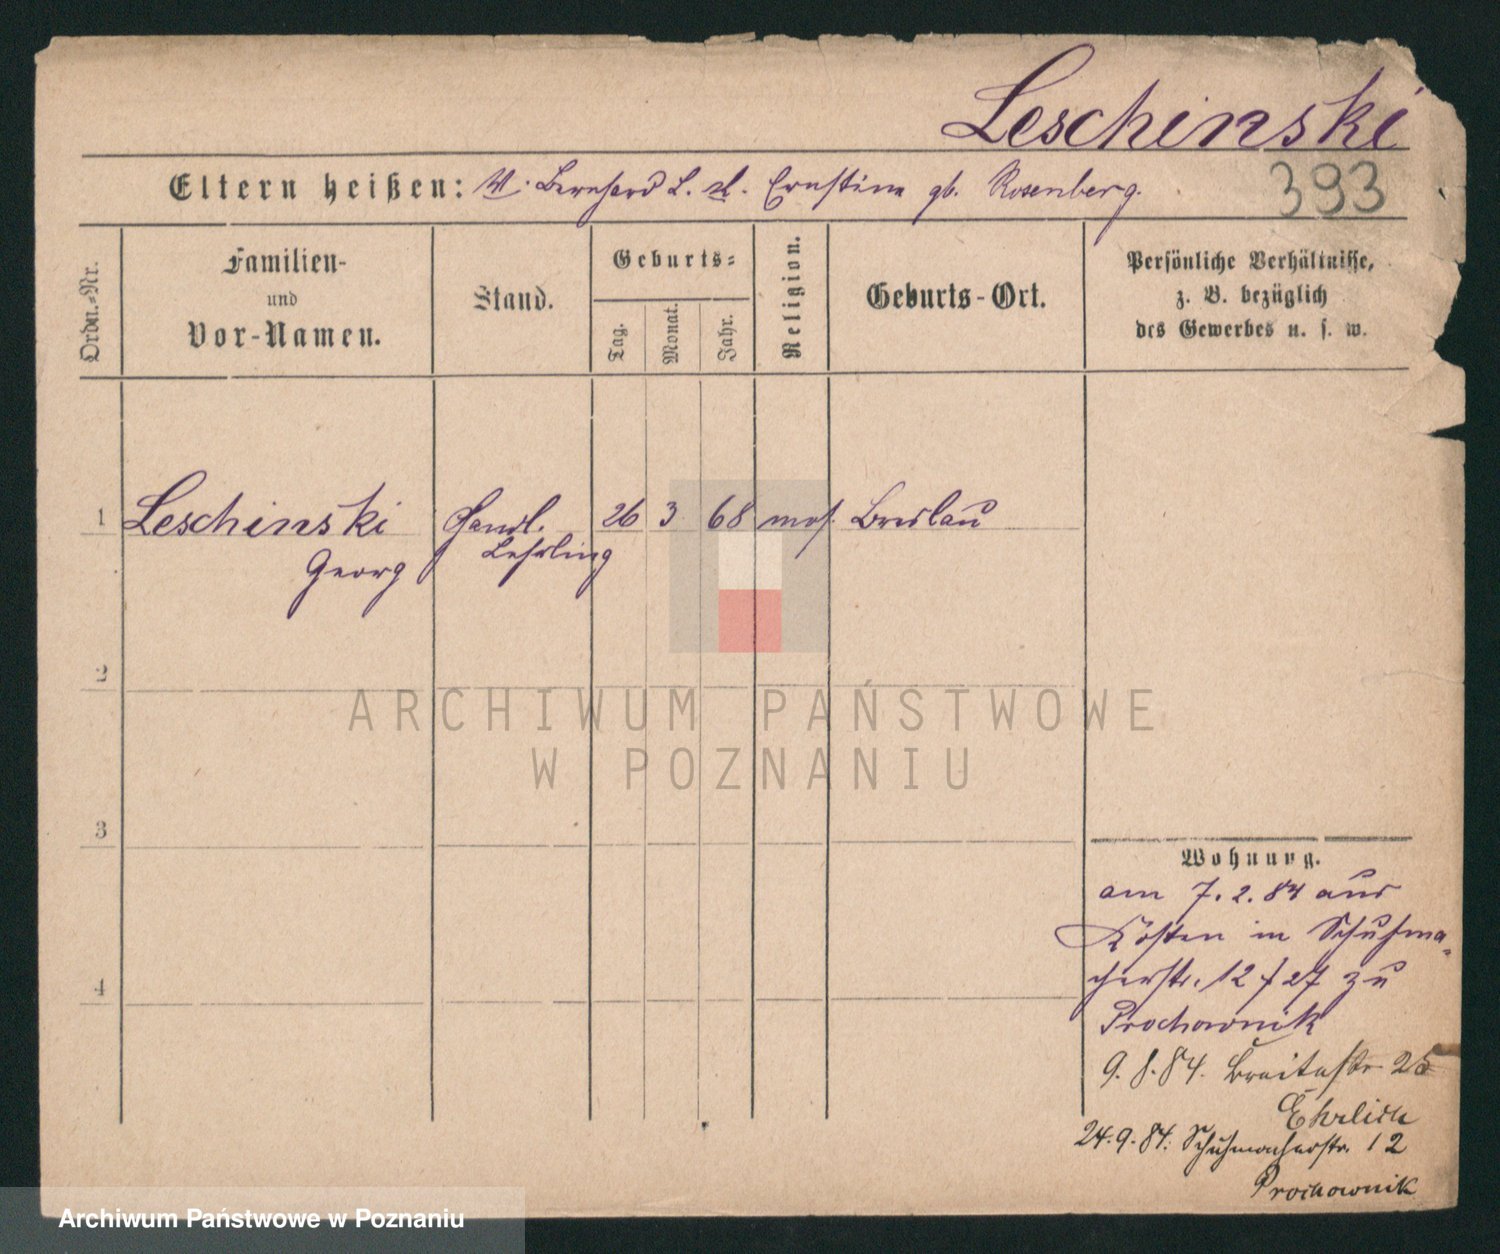 Leschinski
393
Eltern heißen: V. Bernhard L. M. Ernstine gb. Rosenberg.
Ordn.-Nr.
Familien-
und
Vor-Namen.
Stand.
Geburts-
Tag.
Monat.
Jahr.
Religion.
Geburts-Ort.
Persönliche Verhältnisse,
z. B. bezüglich
des Gewerbes u. s. w.
1 Leschinski Handl. 26 3 68 mos. Breslau
Georg Lehrling
2
3
4
Wohnung.
am 7.2.84 aus
Kosten in Schuhma-
cherstr. 12/27 zu
Prochownik
9.8.84. Breitestr. 25
Ehrlich
24.9.84. Schuhmacherstr. 12
Prochownik
ARCHIWUM PAŃSTWOWE
W POZNANIU
Archiwum Państwowe w Poznaniu